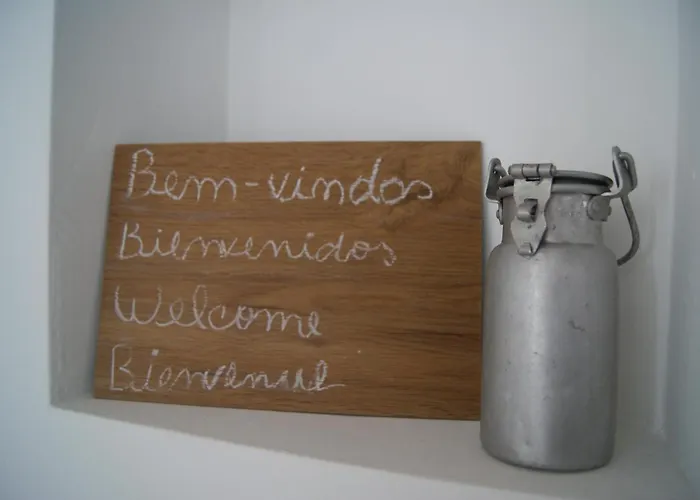 Bem-vindos
Bienvenidos
Welcome
Bienvenue